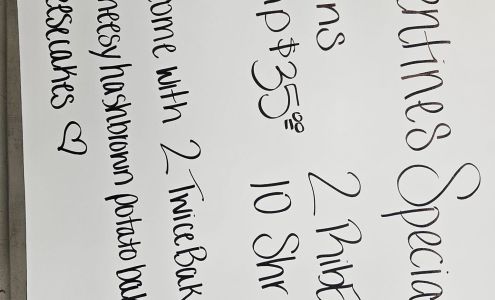 entines Specia
ns 2 Ribe
mp $35⁰⁰ 10 Shr
ome with 2 Twice Bak
heesy hashbrown potato bak
eesecakes ♡